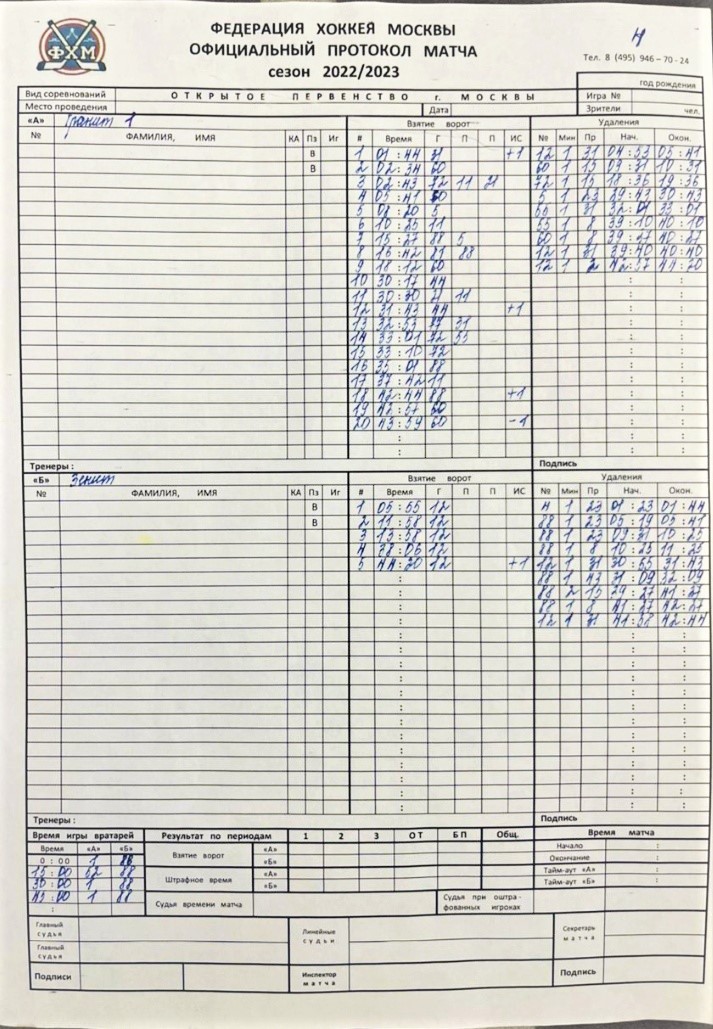 ФХМ
ФЕДЕРАЦИЯ ХОККЕЯ МОСКВЫ
ОФИЦИАЛЬНЫЙ ПРОТОКОЛ МАТЧА
сезон 2022/2023
4
Тел. 8 (495) 946 – 70 - 24
год рождения
Вид соревнований ОТКРЫТОЕ ПЕРВЕНСТВО г. МОСКВЫ Игра №
Место проведения Дата Зрители чел.
«А» Гранит 1 Взятие ворот Удаления
№ ФАМИЛИЯ, ИМЯ КА Пз Иг # Время Г П П ИС № Мин Пр Нач. Окон.
В 1 01:44 +1 12 1 31 04:53 05:41
В 2 02:34 60 60 1 15 09:31 10:31
3 02:43 72 11 72 1 18:36 19:36
4 05:41 60 5 1 23 29:43 30:43
5 08:20 5 1 31 32:01 33:01
6 10:25 11 55 1 8 39:10 40:10
7 15:27 88 5 60 1 8 39:27 40:27
8 16:42 81 88 12 1 31 39:40 40:40
9 18:12 60 12 1 42:57 44:20
10 30:17 44
11 30:30 11
12 31:43 44 +1
13 32:53 31
14 33:01 72 55
15 33:10 72
16 35:01 88
17 37:42 11
18 42:44 88 +1
19 42:57 60
20 43:59 60 -1
Тренеры : Подпись
«Б» Зенит Взятие ворот Удаления
№ ФАМИЛИЯ, ИМЯ КА Пз Иг # Время Г П П ИС № Мин Пр Нач. Окон.
В 1 05:55 12 4 1 23 01:23 01:44
В 2 11:58 12 88 1 23 05:19 05:41
3 13:58 12 88 1 23 09:31 10:25
4 28:06 12 88 1 8 10:25 11:25
5 44:20 12 +1 12 1 31 30:55 31:43
88 1 43 31:09 32:09
88 2 15 39:27 41:27
88 1 8 41:27 42:27
12 1 31 41:58 42:44
Тренеры : Подпись
Время игры вратарей Результат по периодам 1 2 3 ОТ БП Общ. Время матча
Время «А» «Б» Взятие ворот «А» Начало :
0:00 1 88 «Б» Окончание :
15:00 62 88 Штрафное время «А» Тайм-аут «А» :
30:00 1 88 «Б» Тайм-аут «Б» :
45:00 1 88 Судья времени матча Судья при оштра-фованных игроках
Главный судья Линейные судьи Секретарь матча
Главный судья
Подписи Инспектор матча Подпись